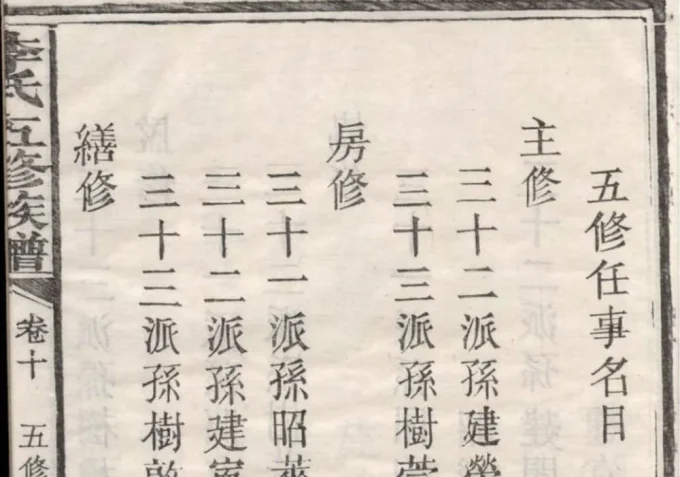 五修任事名目
主修
三十二派孫建
三十三派孫樹
房修
三十一派孫昭
三十二派孫建
三十三派孫樹敦
繕修
李氏五修族譜
卷十
五修